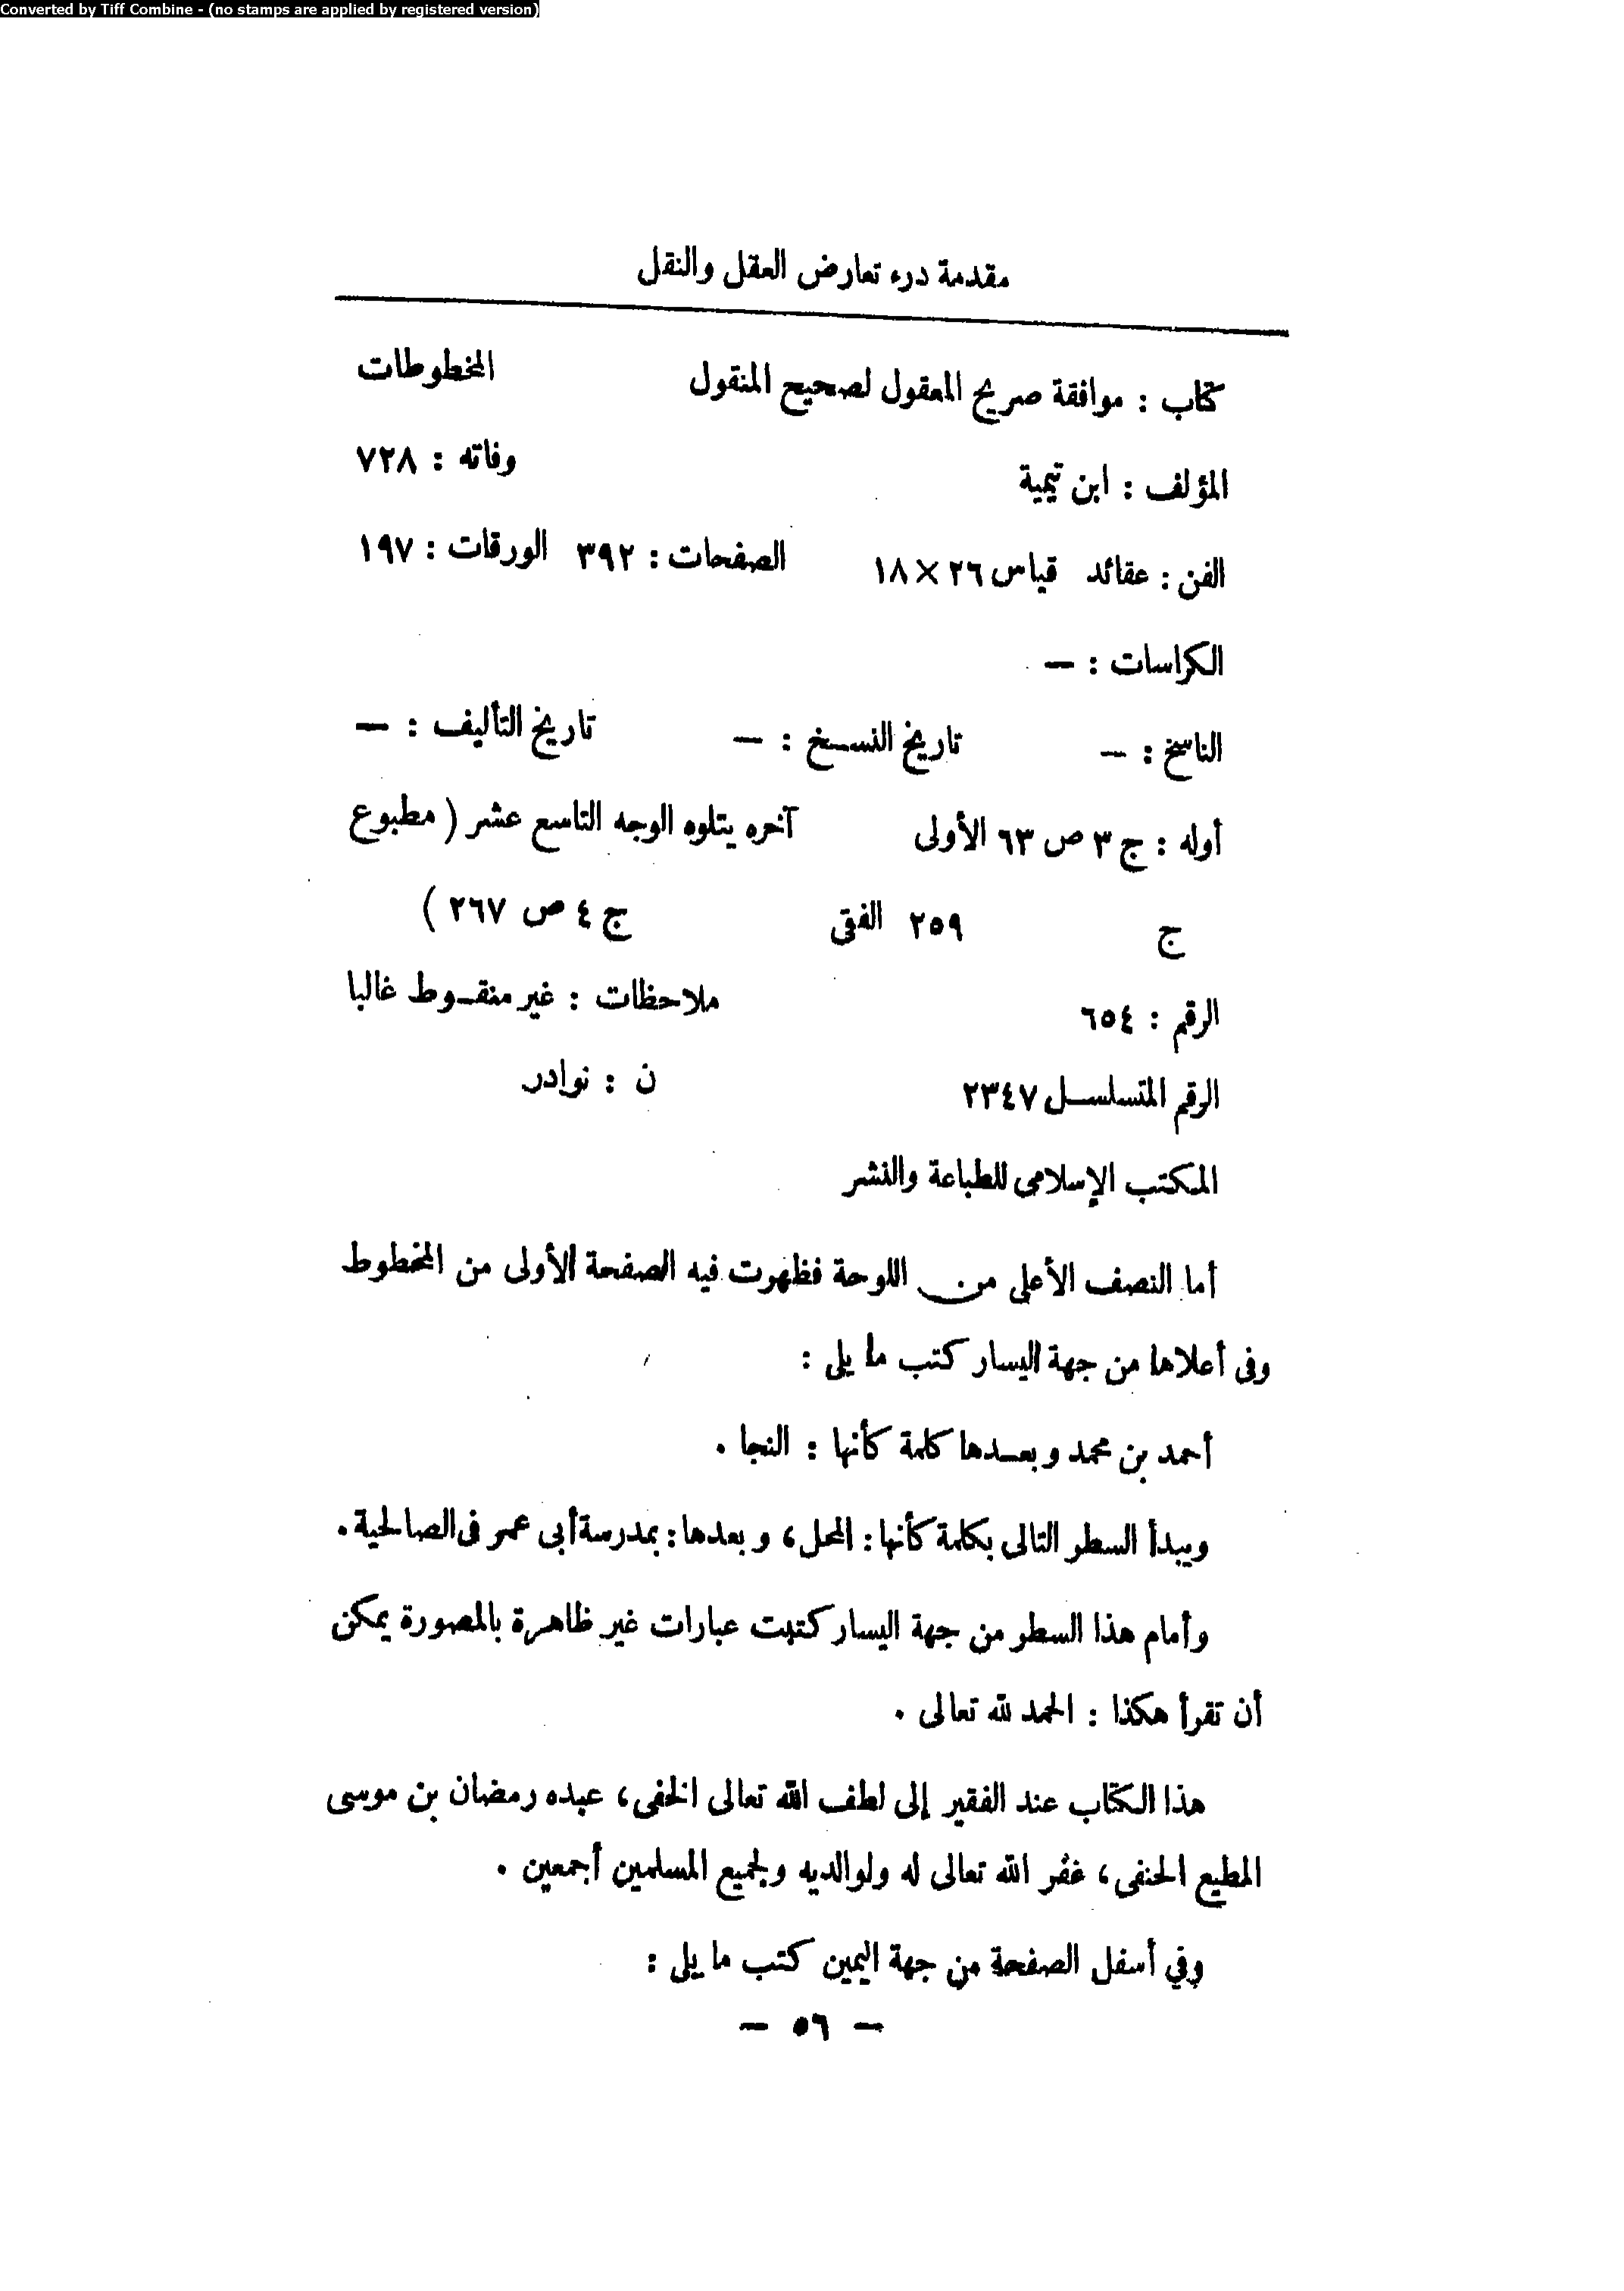 Converted by Tiff Combine - (no stamps are applied by registered version)
مقدمة درء تعارض العقل والنقل
كتاب : موافقة صريح المعقول لصحيح المنقول المخطوطات
المؤلف : ابن تيمية وفاته : ٧٢٨
الفن : عقائد قياس ٢٦ × ١٨ الصفحات : ٣٩٢ الورقات : ١٩٧
الكراسات : —
الناسخ : — تاريخ النسخ : — تاريخ التأليف : —
أوله : ج ٣ ص ٦٣ الأولى آخره يتلوه الوجه التاسع عشر ( مطبوع
ج ٢٥٩ الفقى ج ٤ ص ٢٦٧ )
الرقم : ٦٥٤ ملاحظات : غير منقوط غالبا
الرقم المتسلسل ٢٣٤٧ ن : نوادر
المكتب الإسلامى للطباعة والنشر
أما النصف الأعلى من اللوحة فظهرت فيه الصفحة الأولى من المخطوط
وفى أعلاها من جهة اليسار كتب ما يلى :
أحمد بن محمد وبعدها كلمة كأنها : النجا .
ويبدأ السطر التالى بكلمة كأنها : المحل ، وبعدها : بمدرسة أبى عمر فى الصالحية .
وأمام هذا السطر من جهة اليسار كتبت عبارات غير ظاهرة بالمصورة يمكن
أن تقرأ هكذا : الحمد لله تعالى .
هذا الكتاب عند الفقير إلى لطف الله تعالى الخفى ، عبده رمضان بن موسى
المطيع الحنفى ، غفر الله تعالى له ولوالديه ولجميع المسلمين أجمعين .
وفي أسفل الصفحة من جهة اليمين كتب ما يلى :
— ٥٦ —